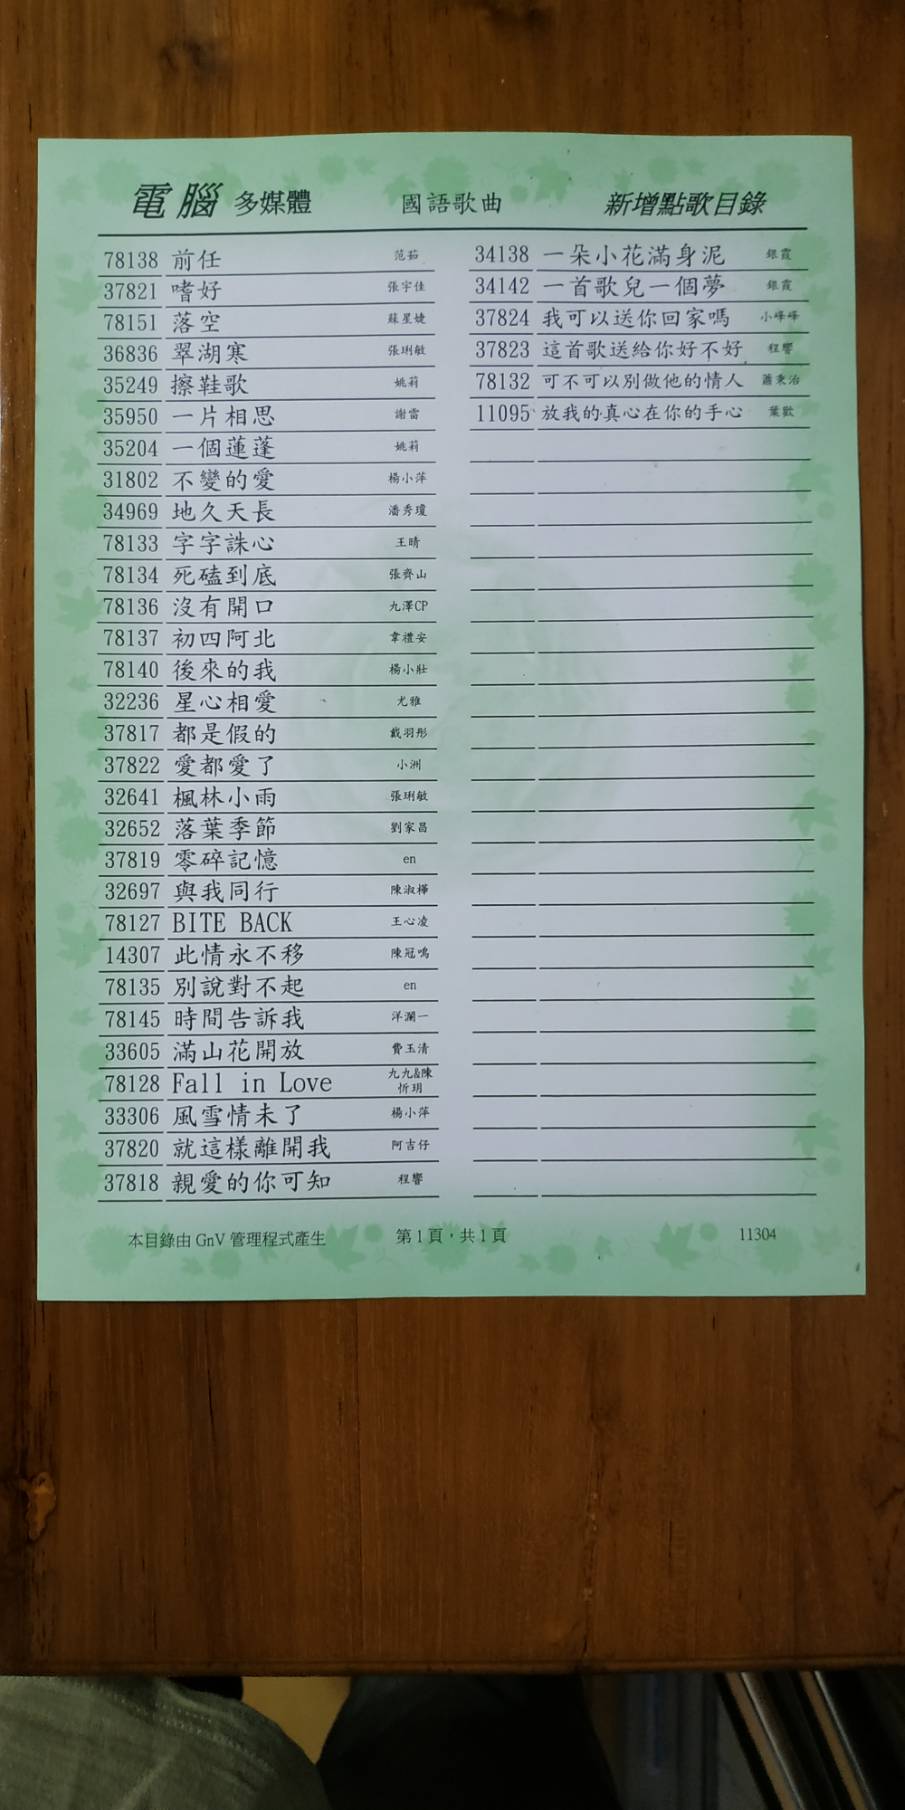 電腦 多媒體 國語歌曲 新增點歌目錄
78138 前任 范茹
37821 嗜好 張宇佳
78151 落空 蘇星婕
36836 翠湖寒 張琍敏
35249 擦鞋歌 姚莉
35950 一片相思 謝雷
35204 一個蓮蓬 姚莉
31802 不變的愛 楊小萍
34969 地久天長 潘秀瓊
78133 字字誅心 王晴
78134 死磕到底 張齊山
78136 沒有開口 九澤CP
78137 初四阿北 韋禮安
78140 後來的我 楊小壯
32236 星心相愛 尤雅
37817 都是假的 戴羽彤
37822 愛都愛了 小洲
32641 楓林小雨 張琍敏
32652 落葉季節 劉家昌
37819 零碎記憶 en
32697 與我同行 陳淑樺
78127 BITE BACK 王心凌
14307 此情永不移 陳冠鳴
78135 別說對不起 en
78145 時間告訴我 洋瀾一
33605 滿山花開放 費玉清
78128 Fall in Love 九九&陳忻玥
33306 風雪情未了 楊小萍
37820 就這樣離開我 阿吉仔
37818 親愛的你可知 程響
34138 一朵小花滿身泥 銀霞
34142 一首歌兒一個夢 銀霞
37824 我可以送你回家嗎 小峰峰
37823 這首歌送給你好不好 程響
78132 可不可以別做他的情人 蕭秉治
11095 放我的真心在你的手心 葉歡
本目錄由 GnV 管理程式產生 第1頁，共1頁 11304